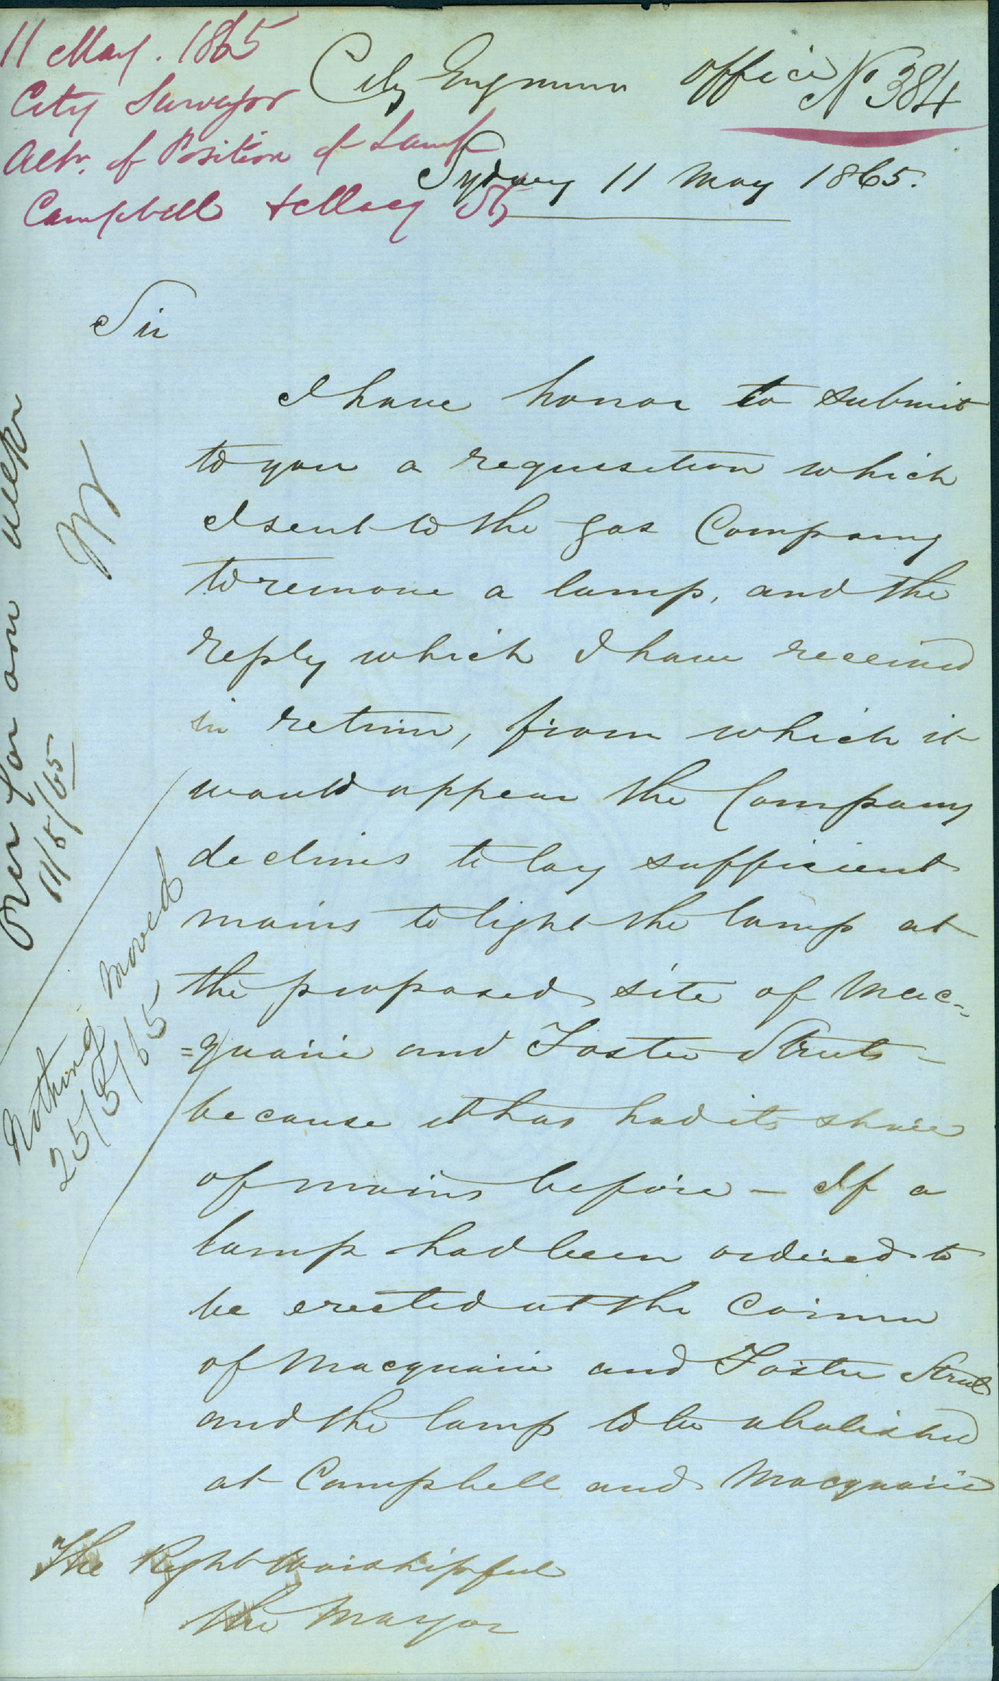 11 May. 1865
City Surveyor
Altn. of Position of Lamp
Campbell & Macq Sts
City Engineers Office
No 384
Sydney 11 May 1865.
Sir
I have honor to submit
to you a requisition which
I sent to the Gas Company
to remove a lamp, and the
reply which I have received
in return, from which it
would appear the Company
declines to lay sufficient
mains to light the lamp at
the proposed site of Mac-
=quarie and Foster Streets -
because it has had its share
of mains before - If a
lamp had been ordered to
be erected at the Corner
of Macquarie and Foster Street
and the lamp to be abolished
at Campbell and Macquarie
The Right Worshipful
the Mayor
Over for one week
11/5/65
Nothing Moved
25/5/65